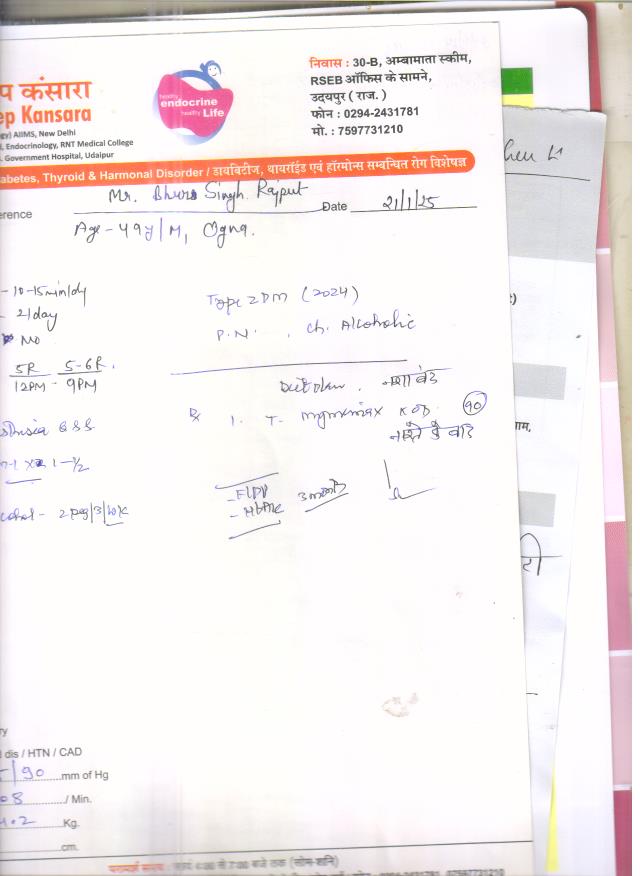 प कंसारा
ep Kansara
gy) AIIMS, New Delhi
l, Endocrinology, RNT Medical College
. Government Hospital, Udaipur
healthy
endocrine
healthy Life
निवास : 30-B, अम्बामाता स्कीम,
RSEB ऑफिस के सामने,
उदयपुर ( राज. )
फोन : 0294-2431781
मो. : 7597731210
abetes, Thyroid & Harmonal Disorder / डायबिटीज, थायरॉईड एवं हॉरमोन्स सम्बन्धित रोग विशेषज्ञ
erence Mr. Singh Rajput Date 21/1/25
Age - 49y/M, Ogna.
- 10-15min/dy
Type 2DM (2024)
- 2l/day
P.N. . Ch. Alcoholic
NO
5R 5-6R.
12PM - 9PM
Diet plan. नशा बंद
Rx 1. T- OD 90
नाश्ते के बाद
1-½
- 2 peg/3/wk
3 month
ry
dis / HTN / CAD
/90 mm of Hg
08 / Min.
.2 Kg.
cm.
परामर्श समय : सायं 4:00 से 7:00 बजे तक (सोम-शनि)
टी